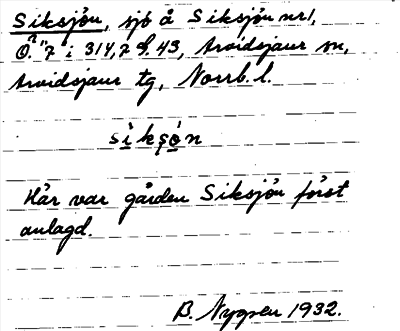 Siksjön, sjö å Siksjön nr 1,
Ö. "7" i 314,7 [?]. 43, Arvidsjaur sn,
Arvidsjaur tg, Norrb. l.
siksøn
Här var gården Siksjön först
anlagd.
B. Nygren 1932.